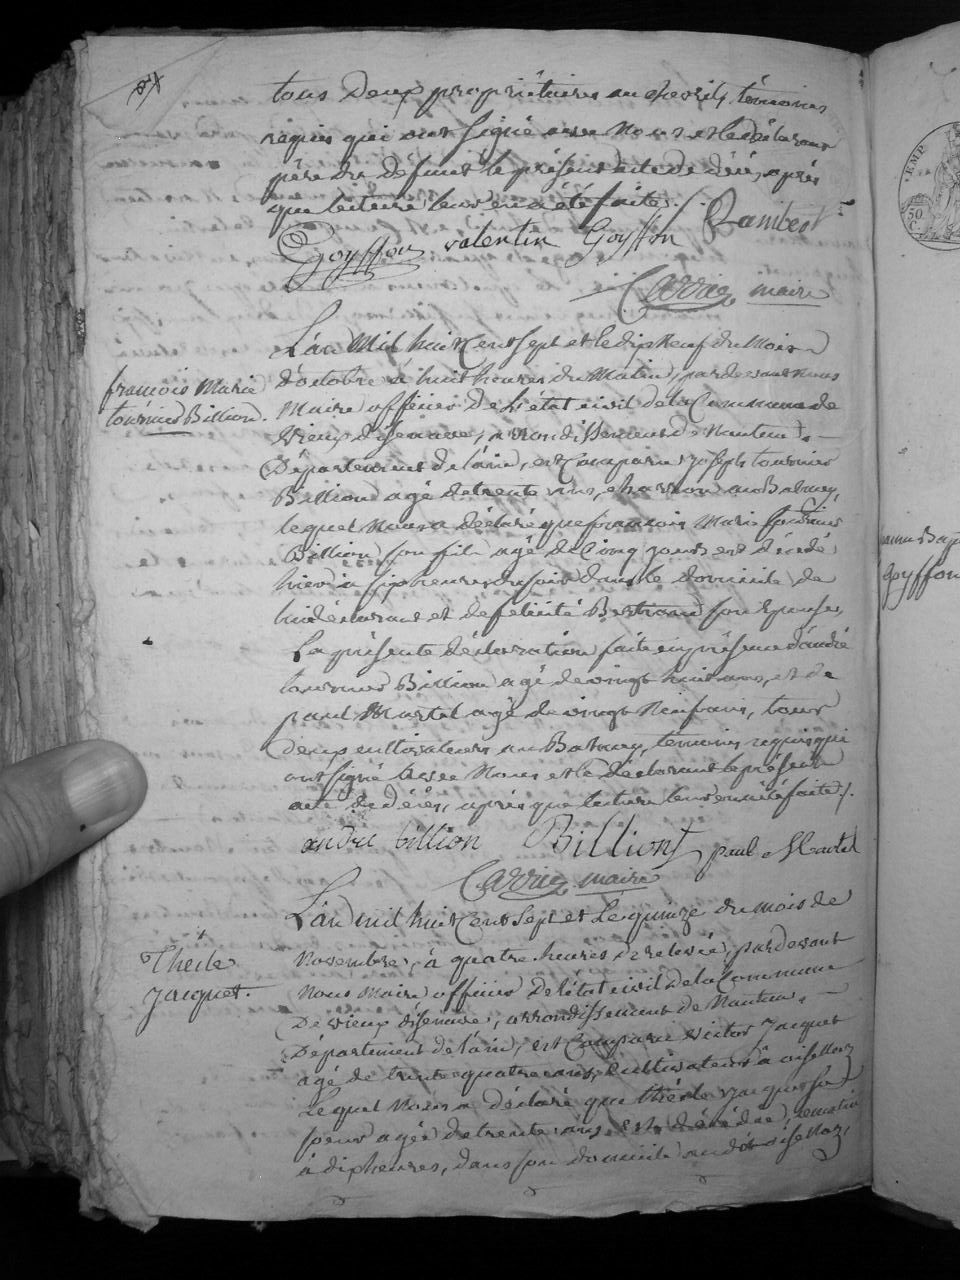 tous deux propriétaires au Chevril, témoins
requis qui ont signé avec Nous et le déclarant
père du defunt le présent acte de décès, après
que lecture leur en a été faite.
Goyffon valentin Goyffon Rambert
Carrier maire
L'an Mil huit Cent Sept et le dix Neuf du Mois
d'octobre à huit heures du Matin, pardevant nous
francois Marie
tournier Billion.
Maire officier de L'etat civil de la Commune de
Vieux disenave, arrondissement de Nantua
Département de l'ain, est Comparu joseph tournier
Billion agé de trente ans, charron au Balmay,
lequel Nous a déclaré que francois Marie tournier
Billion son fils agé de Cinq jours est décédé
hier à six heures du soir dans le domicile de
lui déclarant et de felicité Bertrand son Epouse,
La présente déclaration faite en présence d'andré
tournier Billion agé de vingt huit ans, et de
paul Martel agé de vingt Neuf ans, tous
deux cultivateurs au Balmay, temoins requis qui
ont signé avec Nous et le déclarant le présent
acte de décès, après que lecture leur en a été faite.
andré billion Billiont paul Martel
Carrier maire
L'an mil huit Cent Sept et Le quinze du mois de
Novembre, à quatre heures de relevée, pardevant
Jacquet.
nous Maire officier de l'état civil de la Commune
De vieux disenave, arrondissement de Nantua
Département de l'ain, est Comparu victor Jacquet
agé de trente quatre ans, Cultivateur à
Lequel Nous a déclaré que Jacquet sa
soeur agée de trente ans est décédée, ce matin
à dix heures, dans son domicile au dit
50
C.
Goyffon